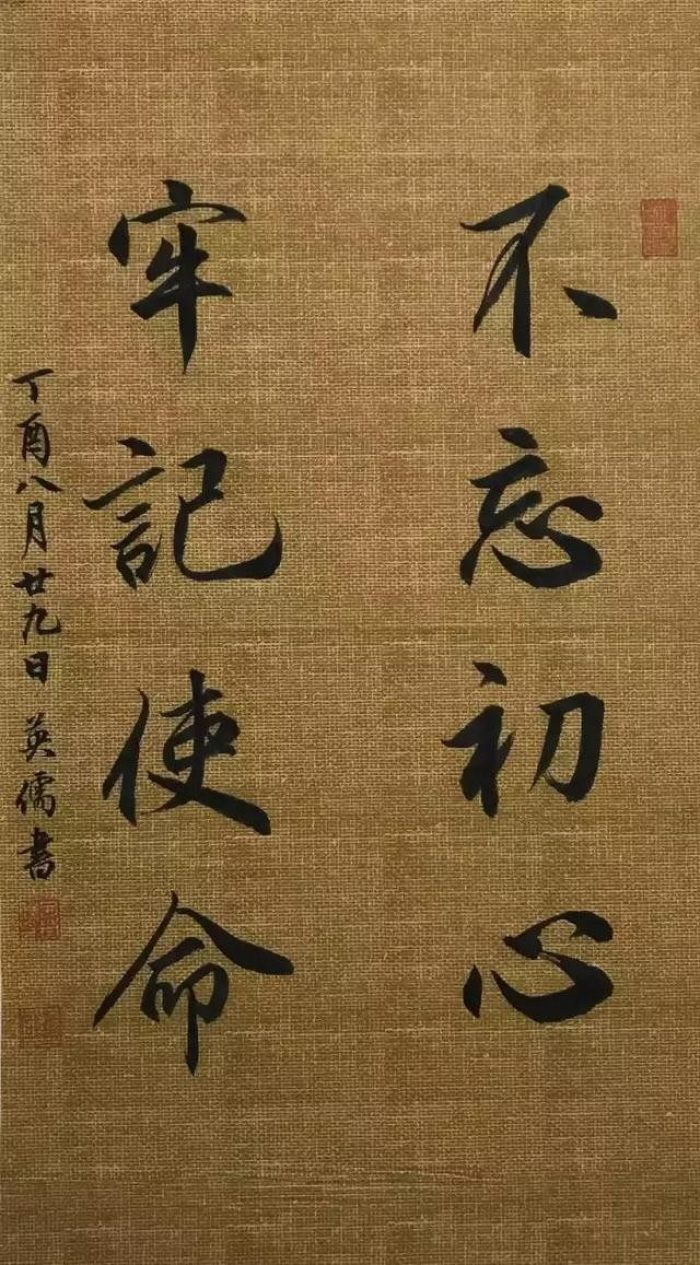 不忘初心
牢記使命
丁酉八月廿九日 英儒書